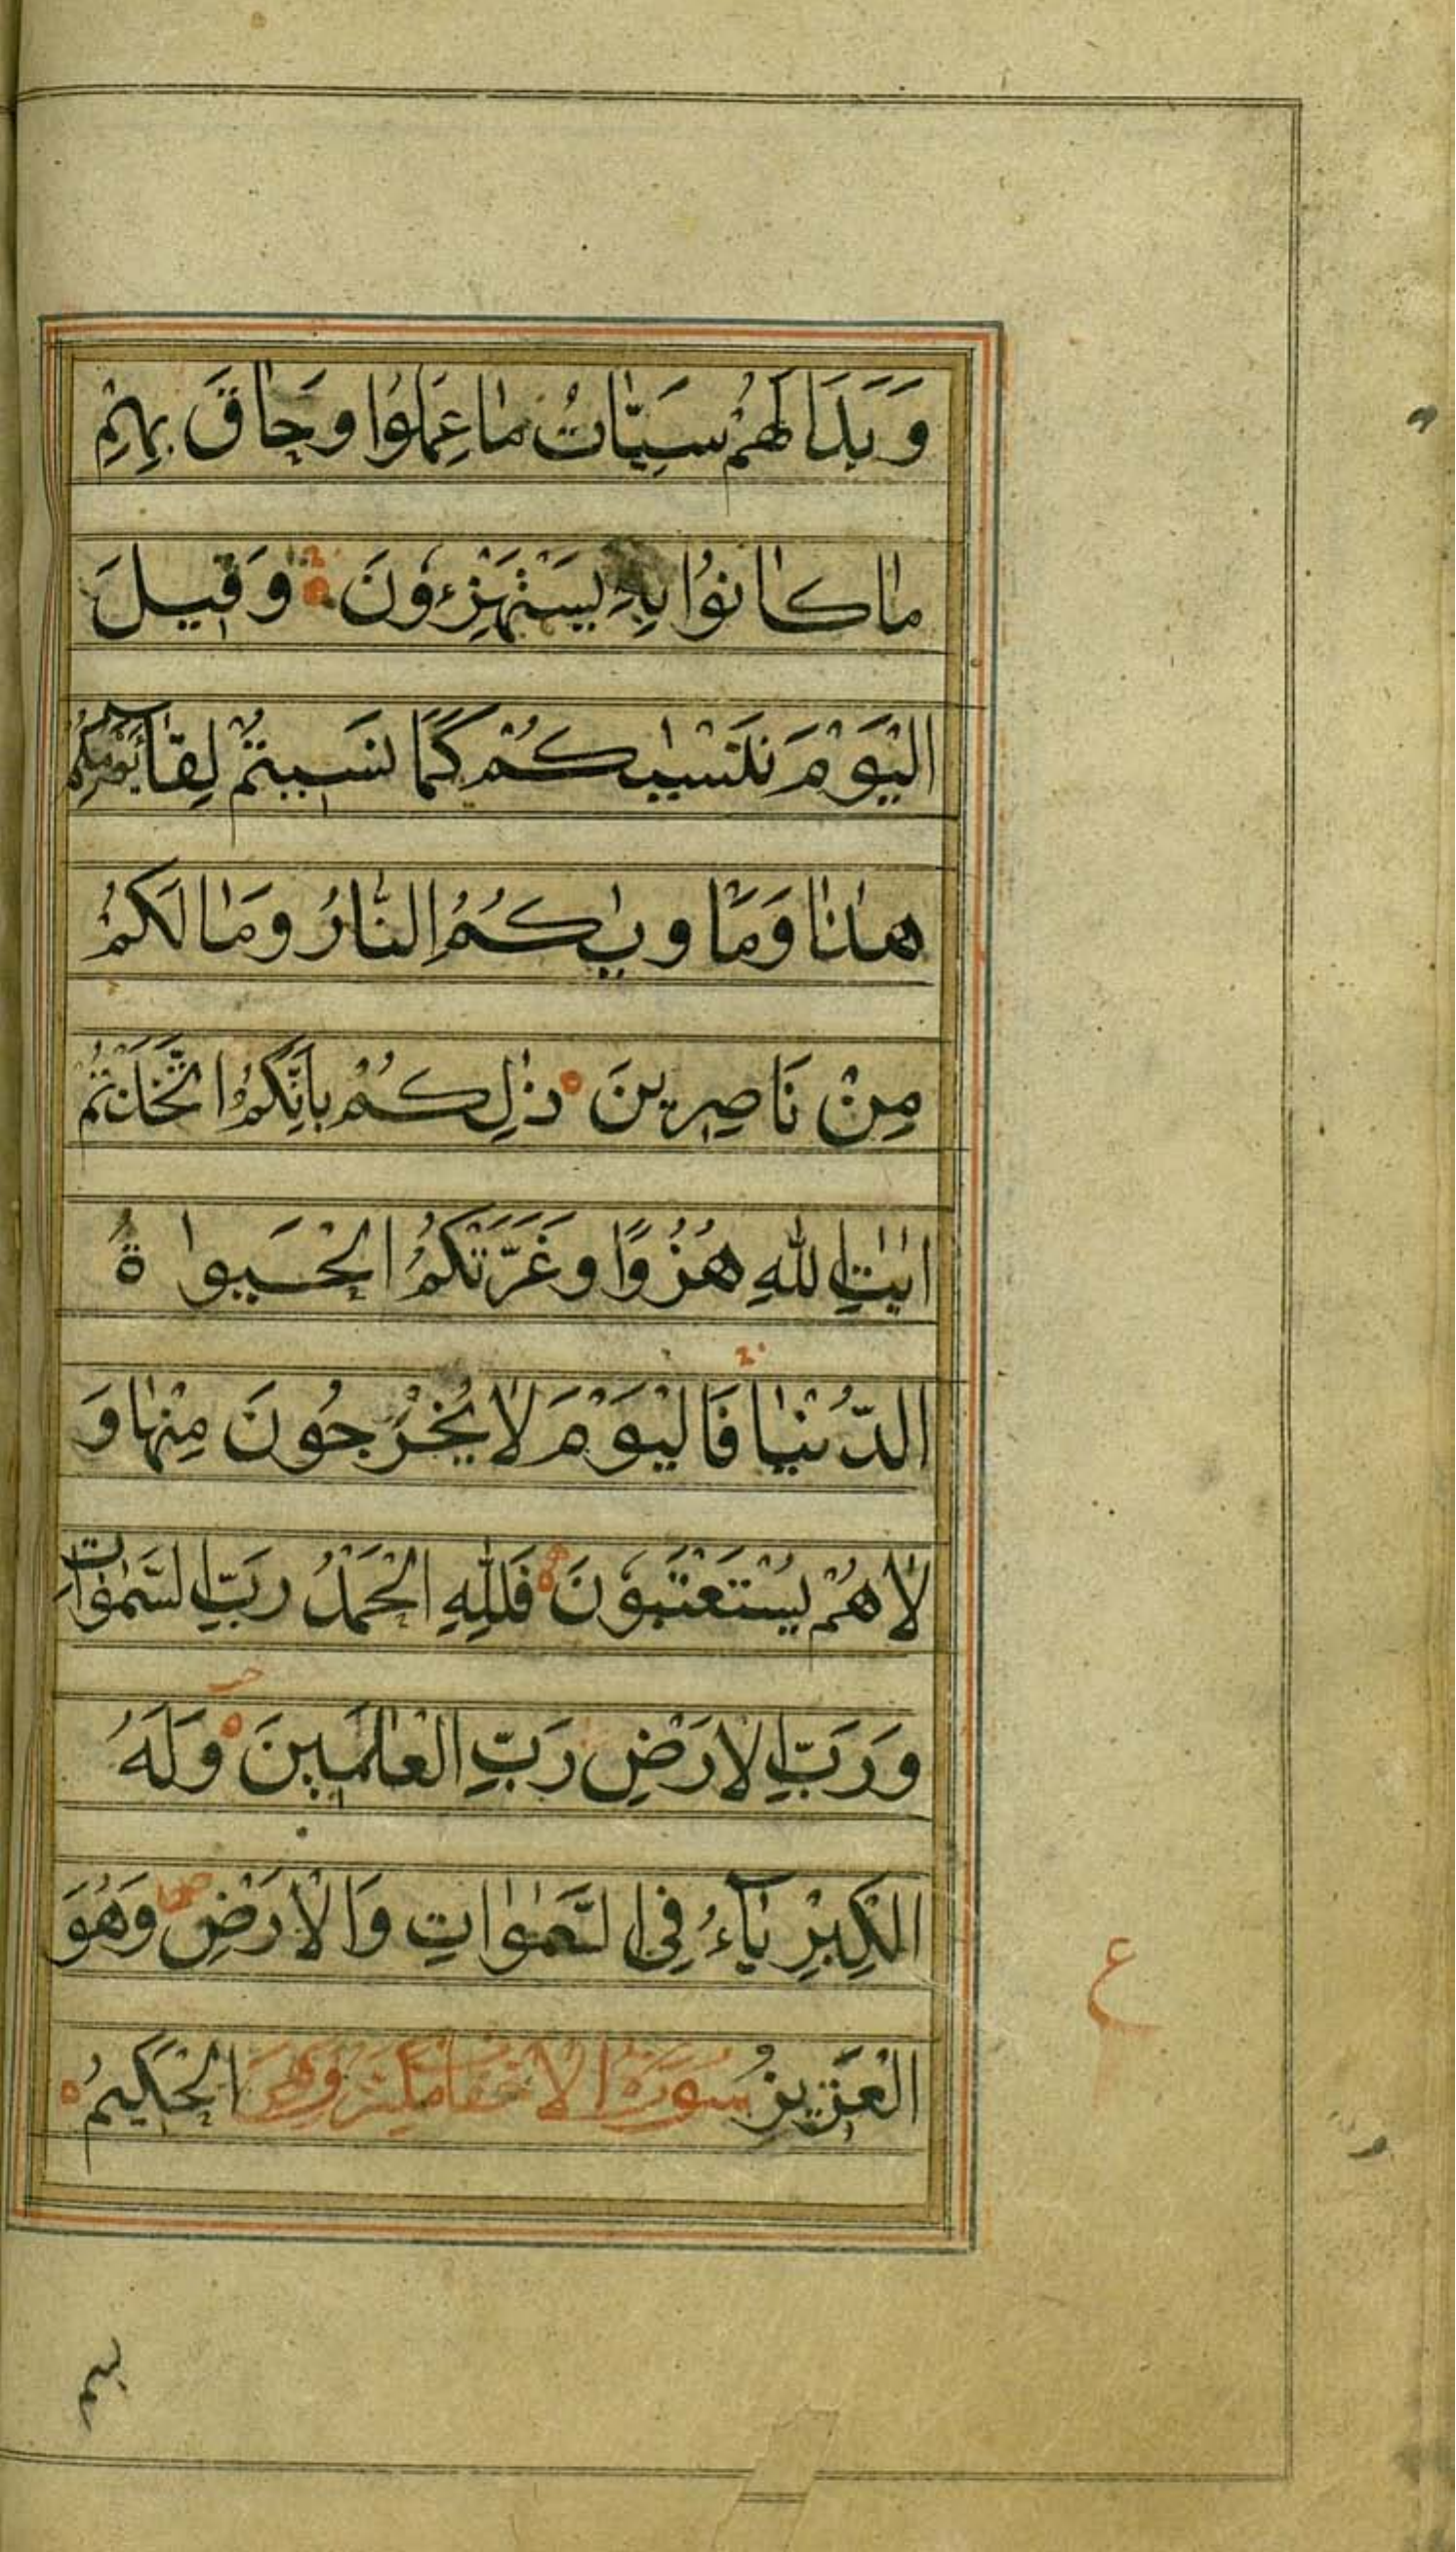 وَبَدَا لَهُمْ سَيِّاٰتُ مٰا عَمِلُوا وَحٰاقَ بِهِمْ
مٰا كٰانُوا بِهِ يَسْتَهْزِءُونَ وَقِيلَ
الْيَوْمَ نَنْسٰيكُمْ كَمٰا نَسِيتُمْ لِقٰٓاءَ يَوْمِكُمْ
هٰذٰا وَمَاْوٰيكُمُ النّٰارُ وَمٰا لَكُمْ
مِنْ نَاصِرِينَ ذٰلِكُمْ بِاَنَّكُمُ اتَّخَذْتُمْ
اٰيٰاتِ اللهِ هُزُوًا وَغَرَّتْكُمُ الْحَيٰوةُ
الدُّنْيٰا فَالْيَوْمَ لاٰ يُخْرَجُونَ مِنْهٰا وَ
لاٰ هُمْ يُسْتَعْتَبُونَ فَلِلّٰهِ الْحَمْدُ رَبِّ السَّمٰوٰاتِ
وَرَبِّ الْاَرْضِ رَبِّ الْعٰالَمِينَ وَلَهُ
الْكِبْرِيٰٓاءُ فِي السَّمٰوٰاتِ وَالْاَرْضِ وَهُوَ
الْعَزِيزُ سُورَةُ الْاَحْقَاف مَكِّيَّة وَهِيَ الْحَكِيمُ
ع